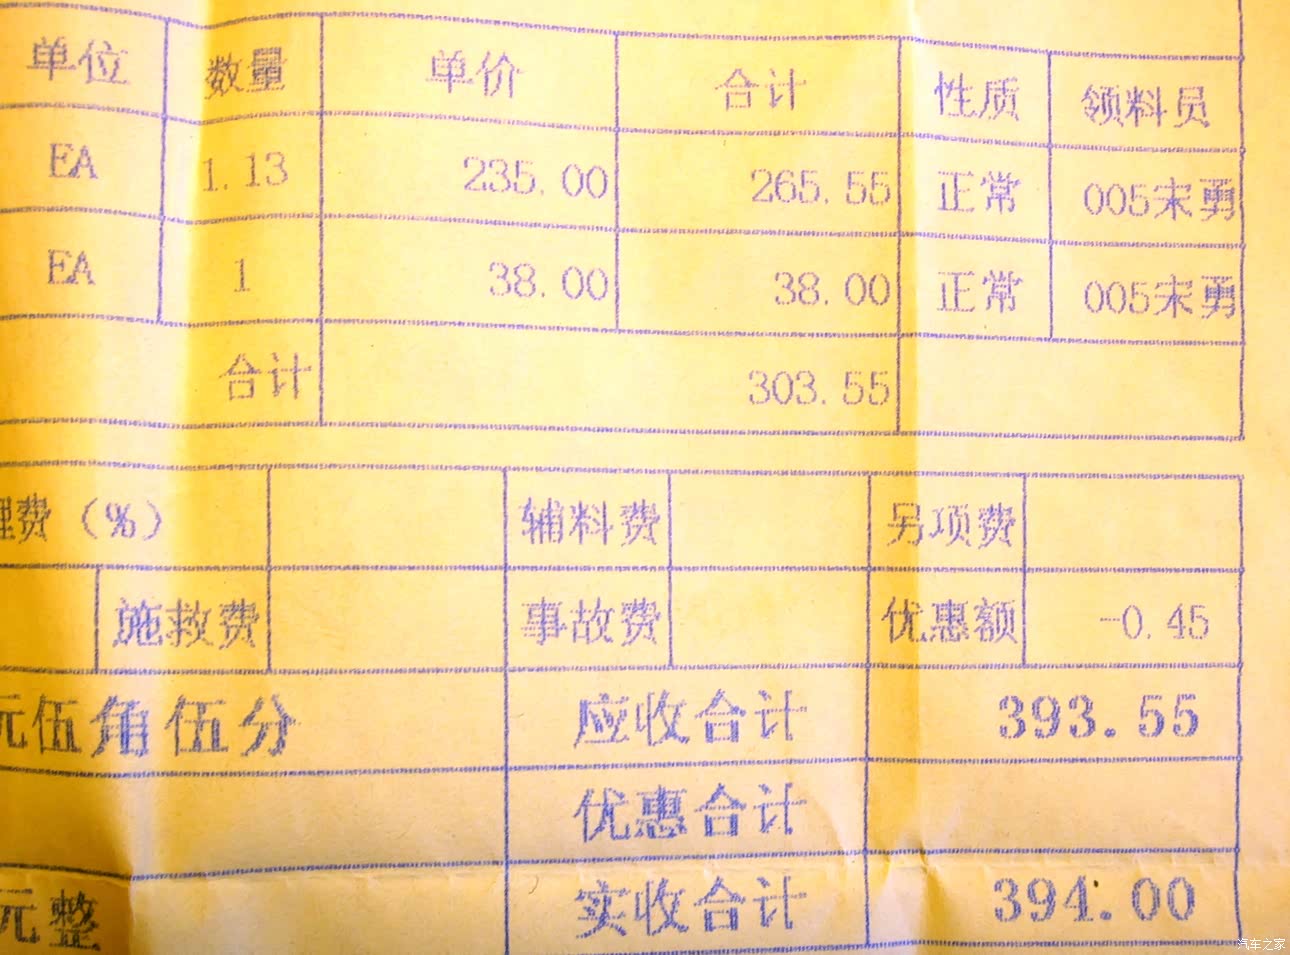 单位 数量 单价 合计 性质 领料员
EA 1.13 235.00 265.55 正常 005宋勇
EA 1 38.00 38.00 正常 005宋勇
合计 303.55
理费（%） 辅料费 另项费
施救费 事故费 优惠额 -0.45
元伍角伍分 应收合计 393.55
优惠合计
元整 实收合计 394.00
汽车之家